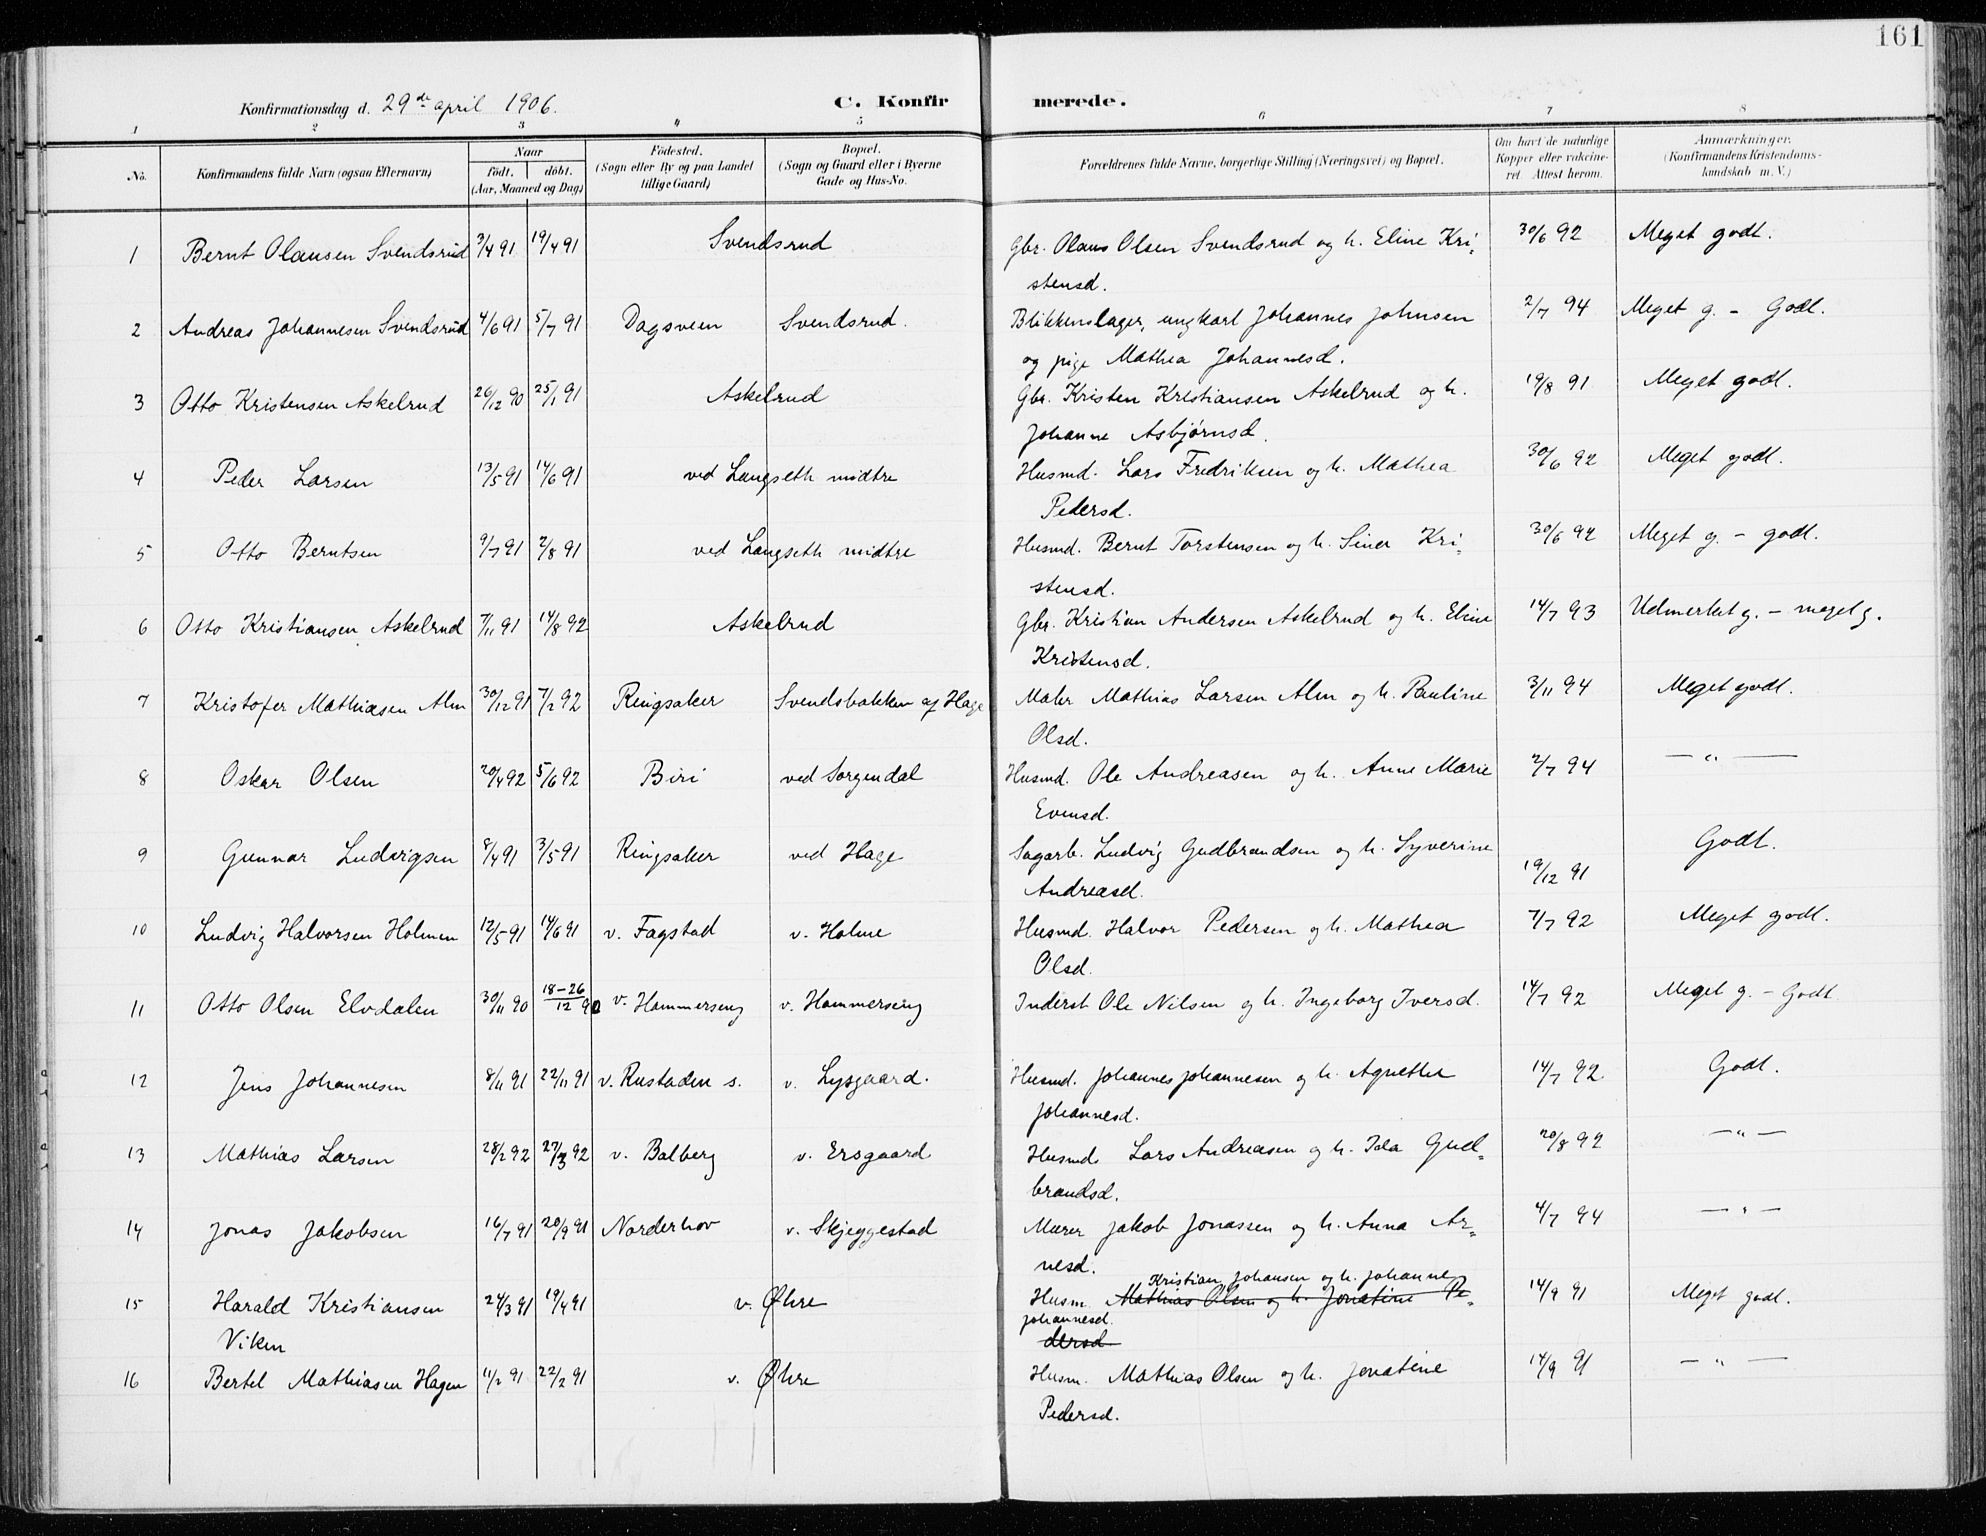 161
Konfirmationsdag d. 29de april 1906. C. Konfirmerede.
1 2 3 4 5 6 7 8
No. Konfirmandens fulde Navn (ogsaa Efternavn) Naar født. døbt. (Aar, Maaned og Dag) Fødested. (Sogn eller By og paa Landet tillige Gaard) Bopæl. (Sogn og Gaard eller i Byerne Gade og Hus-No. Forældrenes fulde Navne, borgerlige Stilling (Næringsvei) og Bopæl. Om havt de naturlige Kopper eller vakcineret. Attest herom. Anmærkninger. (Konfirmandens Kristendomskundskab m. V.)
1 Bernt Olausen Svendsrud 3/4 91 19/4 91 Svendsrud Gbr. Olaus Olsen Svendsrud og h. Eline Kri- 30/6 92 Meget godt.
stensd.
2 Andreas Johannesen Svendsrud 4/6 91 5/7 91 Dagsveen Svendsrud. Blikkenslager, ungkarl Johannes Johnsen 2/7 94 Meget g. - Godt.
og pige Mathea Johannesd.
3 Otto Kristensen Askelrud 26/12 90 25/1 91 Askelrud Gbr. Kristen Kristiansen Askelrud og h. 19/8 91 Meget godt.
Johanne Asbjørnsd.
4 Peder Larsen 13/5 91 14/6 91 ved Langseth midtre Husmd. Lars Fredriksen og h. Mathea 30/6 92 Meget godt.
Pedersd.
5 Otto Berntsen 9/7 91 2/8 91 ved Langseth midtre Husmd. Bernt Torstensen og h. Sina Kri- 30/6 92 Meget g. - godt.
stensd.
6 Otto Kristiansen Askelrud 7/11 91 14/8 92 Askelrud Gbr. Kristian Andersen Askelrud og h. Eline 14/7 93 Udmerket g. - meget g.
Kristensd.
7 Kristofer Mathiasen Alm 30/12 91 7/2 92 Ringsaker Svendsbakken af Hage Maler Mathias Larsen Alm og h. Pauline 3/11 94 Meget godt.
Olsd.
8 Oskar Olsen 20/4 92 5/6 92 Biri ved Sorgendal Husmd. Ole Andreasen og h. Anne Marie 2/7 94 — " —
Evensd.
9 Gunnar Ludvigsen 8/4 91 3/5 91 Ringsaker ved Hage Sagarb. Ludvig Gudbrandsen og h. Syverine 19/12 91 Godt.
Andreasd.
10 Ludvig Halvorsen Holmen 12/5 91 14/6 91 v. Fagstad v. Holme Husmd. Halvor Pedersen og h. Mathea 7/7 92 Meget godt.
Olsd.
11 Otto Olsen Elvdalen 30/11 90 18-26/12 90 v. Hammerseng v. Hammerseng Inderst Ole Nilsen og h. Ingeborg Iversd. 14/7 92 Meget g. - Godt.
12 Jens Johannesen 8/11 91 22/11 91 v. Rustaden s. v. Lysgaard. Husmd. Johannes Johannesen og h. Agnethe 14/7 92. Godt.
Johannesd.
13 Mathias Larsen 28/2 92 27/3 92 v. Balberg v. Ersgaard Husmd. Lars Andreasen og h. Ida Gud- 20/8 92 — " —
brandsd.
14 Jonas Jakobsen 16/7 91 20/9 91 Norderhov v. Skjeggestad Murer Jakob Jonassen og h. Anna Ar- 4/7 94 — " —
nesd.
Kristian Johansen og h. Johanne
15 Harald Kristiansen 24/3 91 19/4 91 v. Øhre Husm. Mathias Olsen og h. Jonatine Pe- 14/9 91 Meget godt.
Johannesd.
Viken dersd.
16 Bertel Mathiasen Hagen 11/2 91 22/2 91 v. Øhre Husm. Mathias Olsen og h. Jonatine 14/9 91 — " —
Pedersd.